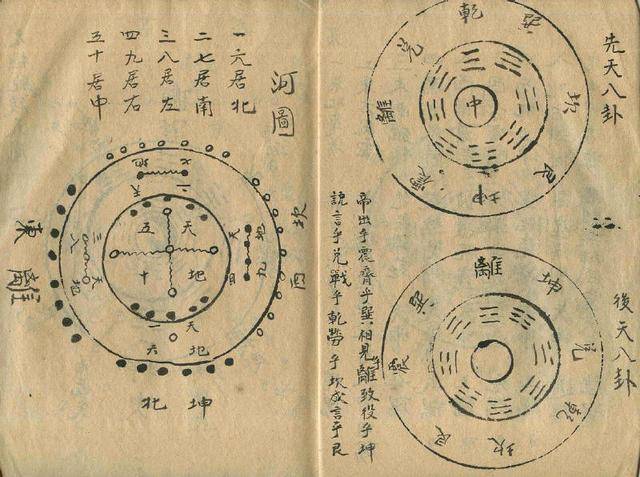 先天八卦
乾
巽
坎
艮
坤
震
離
兌
中
後天八卦
離
坤
兌
乾
坎
艮
震
巽
帝出乎震齊乎巽相見乎離致役乎坤
説言乎兌戰乎乾勞乎坎成言乎艮
河圖
一六居北
二七居南
三八居左
四九居右
五十居中
地七
二天
坎
西
地九
天四
天五
地十
三天
八地
東
離
天一
地六
北
坤